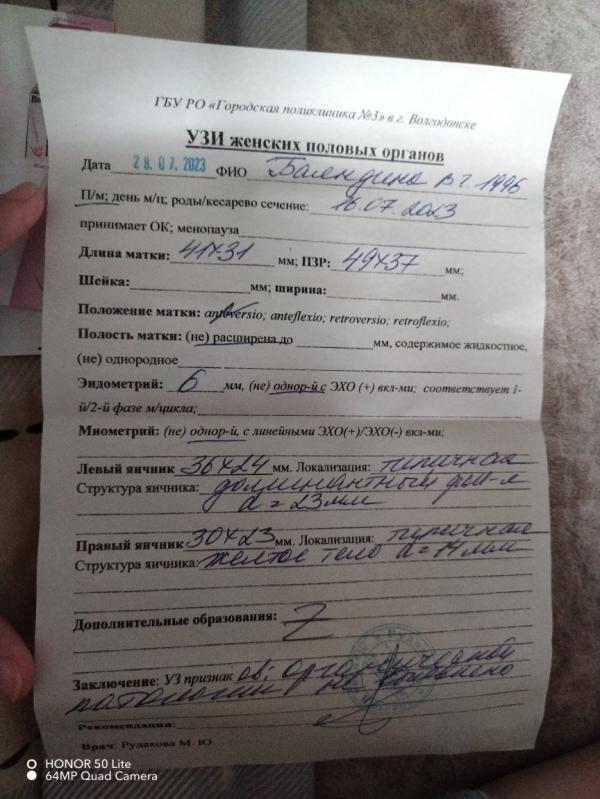 ГБУ РО «Городская поликлиника №3» в г. Волгодонске
УЗИ женских половых органов
Дата 28.07.2023 ФИО Баландина в г. 1996
П/м; день м/ц; роды/кесарево сечение: 16.07.2023
принимает ОК; менопауза
Длина матки: 41х31 мм; ПЗР: 49х37 мм;
Шейка: мм; ширина: мм.
Положение матки: anteversio; anteflexio; retroversio; retroflexio;
Полость матки: (не) расширена до мм, содержимое жидкостное,
(не) однородное
Эндометрий: 6 мм, (не) однор-й с ЭХО (+) вкл-ми; соответствует 1-
й/2-й фазе м/цикла;
Миометрий: (не) однор-й, с линейными ЭХО(+)/ЭХО(-) вкл-ми;
Левый яичник 36х24 мм. Локализация: типичная
Структура яичника: доминантный фол-л
d = 23мм
Правый яичник 30х23 мм. Локализация: типичная
Структура яичника: желтое тело d = 14 мм
Дополнительные образования:
Заключение: УЗ признаков: органической
патологии не выявлено
Рекомендации:
Врач: Рудакова М. Ю.
HONOR 50 Lite
64MP Quad Camera